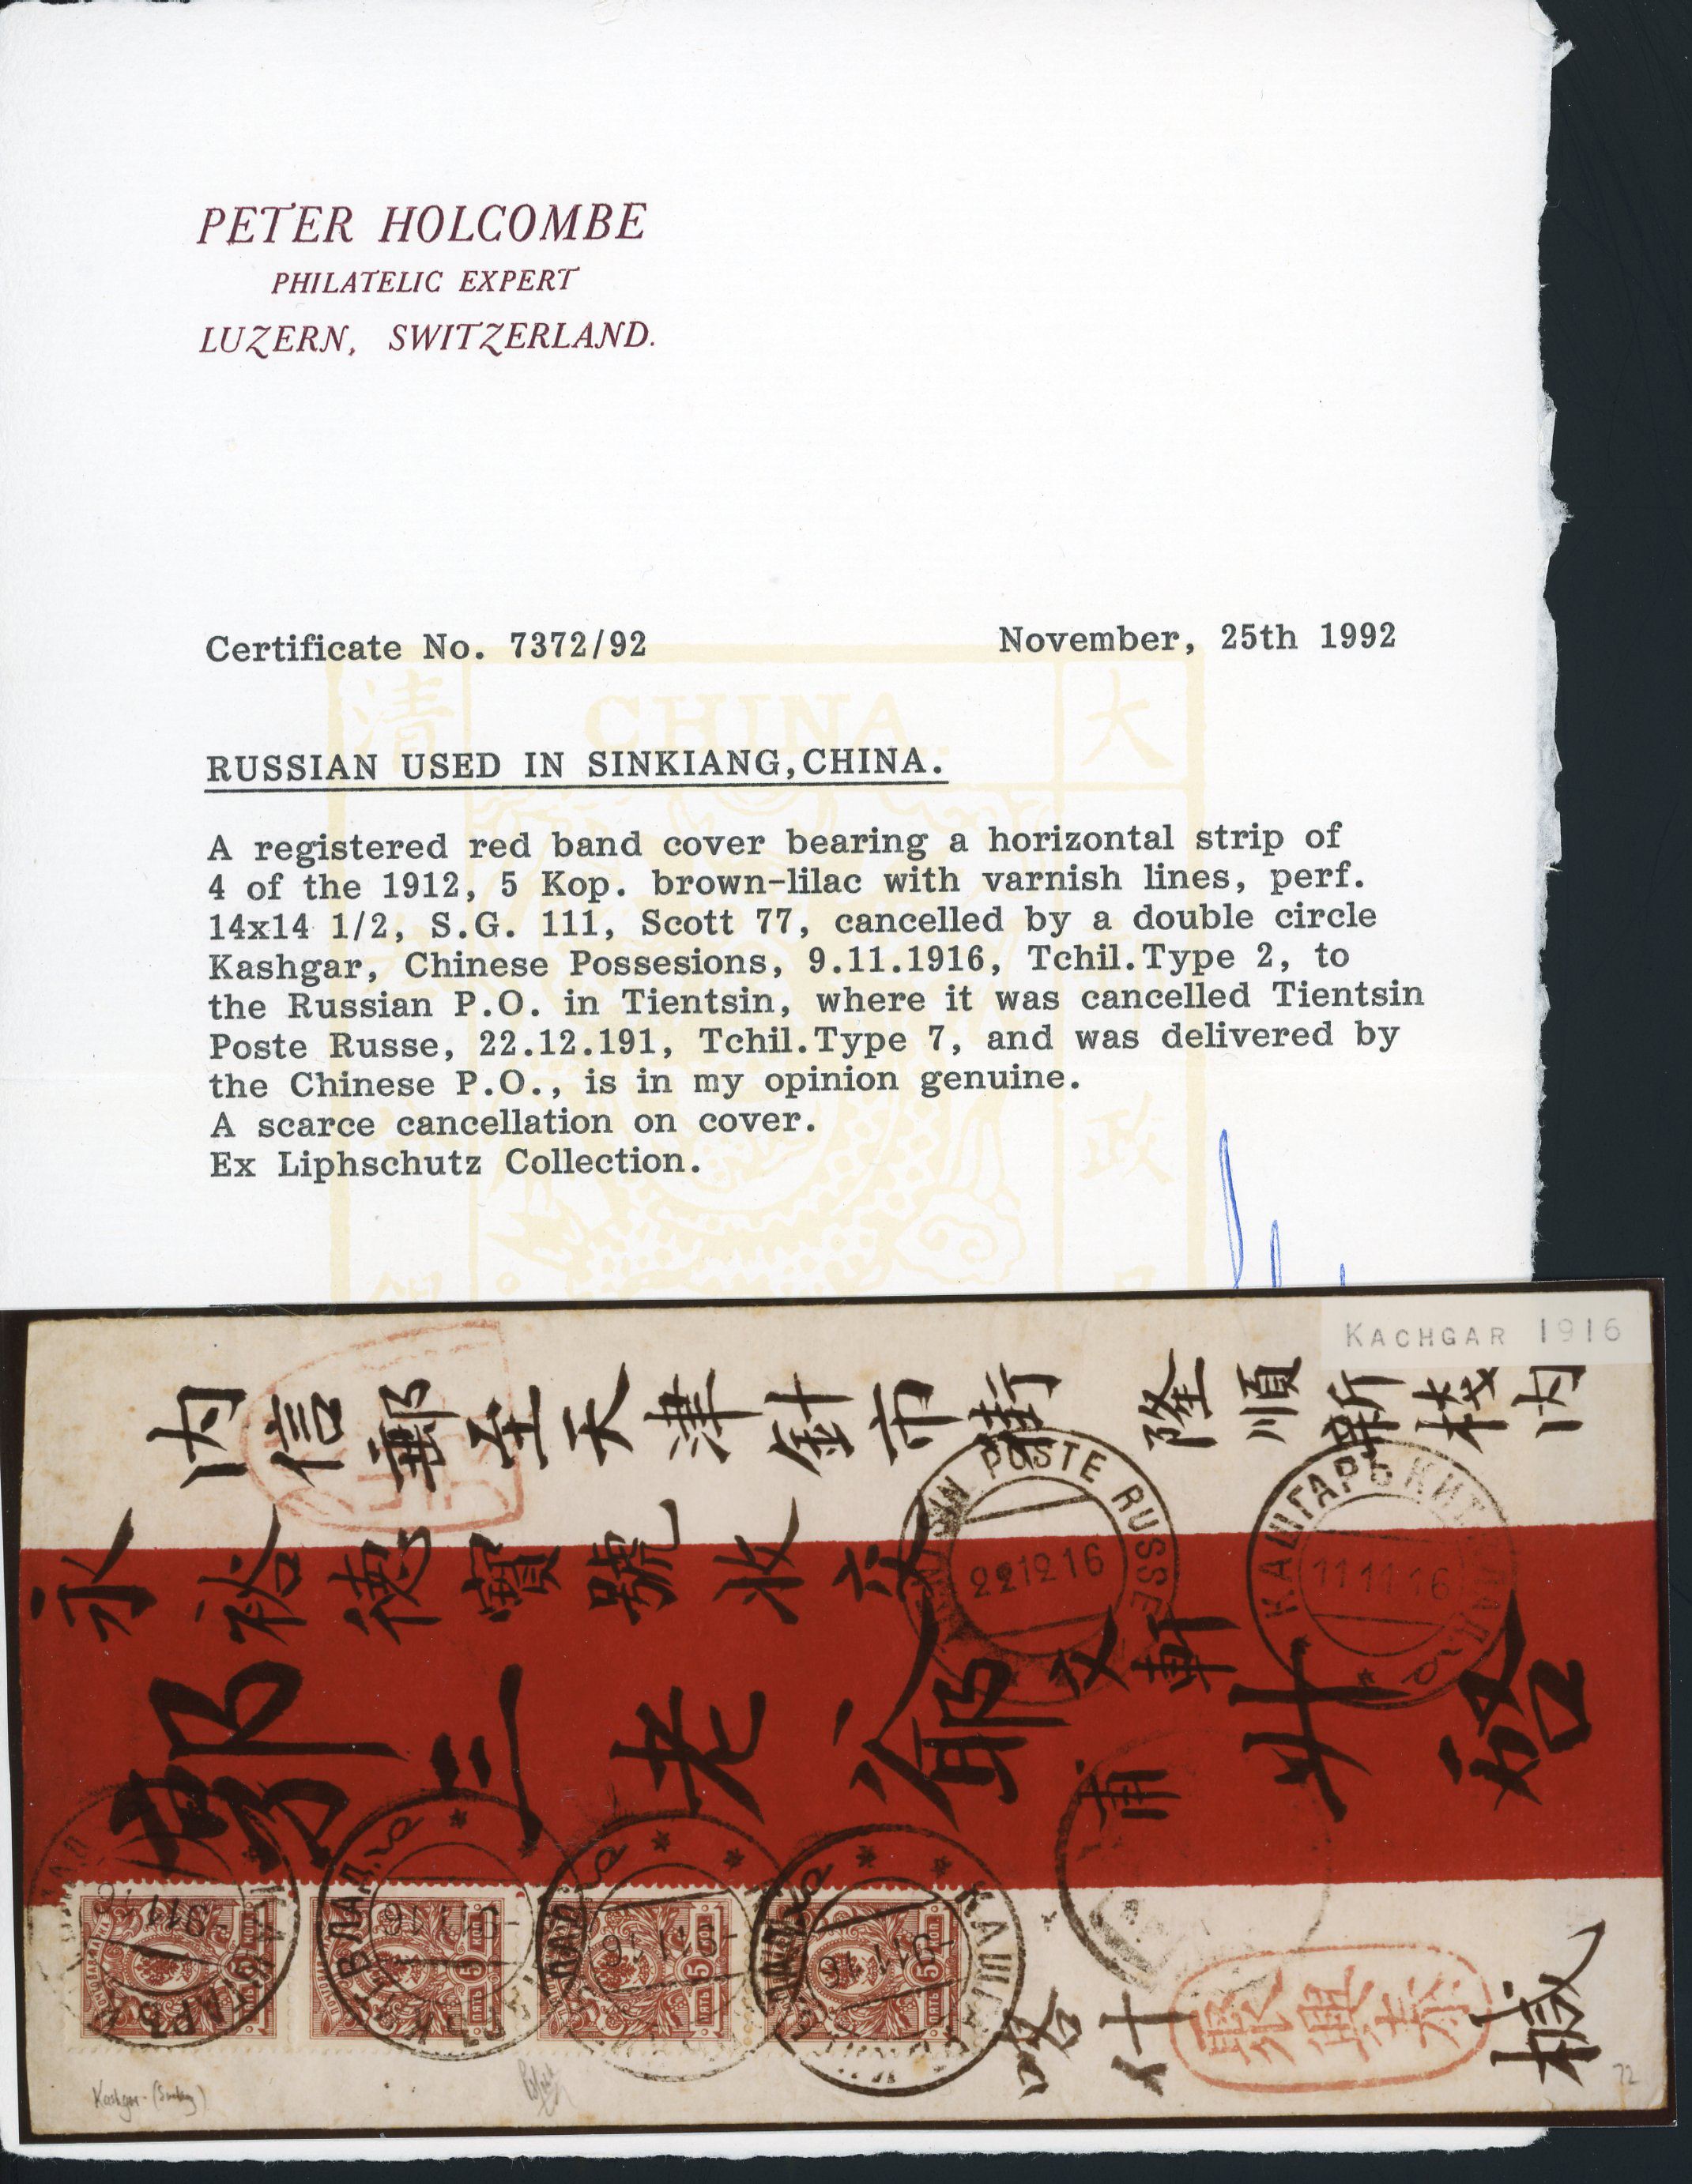 PETER HOLCOMBE
PHILATELIC EXPERT
LUZERN, SWITZERLAND.
Certificate No. 7372/92
November, 25th 1992
清 CHINA 大
RUSSIAN USED IN SINKIANG,CHINA.
A registered red band cover bearing a horizontal strip of
4 of the 1912, 5 Kop. brown-lilac with varnish lines, perf.
14x14 1/2, S.G. 111, Scott 77, cancelled by a double circle
Kashgar, Chinese Possesions, 9.11.1916, Tchil.Type 2, to
the Russian P.O. in Tientsin, where it was cancelled Tientsin
Poste Russe, 22.12.191, Tchil.Type 7, and was delivered by
the Chinese P.O., is in my opinion genuine.
A scarce cancellation on cover.
Ex Liphschutz Collection.
政
KACHGAR 1916
內信郵至天津針市街
隆順
內
永裕德寶號收
文軒
三老
喀什
POSTE RUSSE
22 12 16
КАШГАРЪ
11 11 16
-9 11 16
-9 11 16
-9 11 16
-9 11 16
5
5
5
5
72